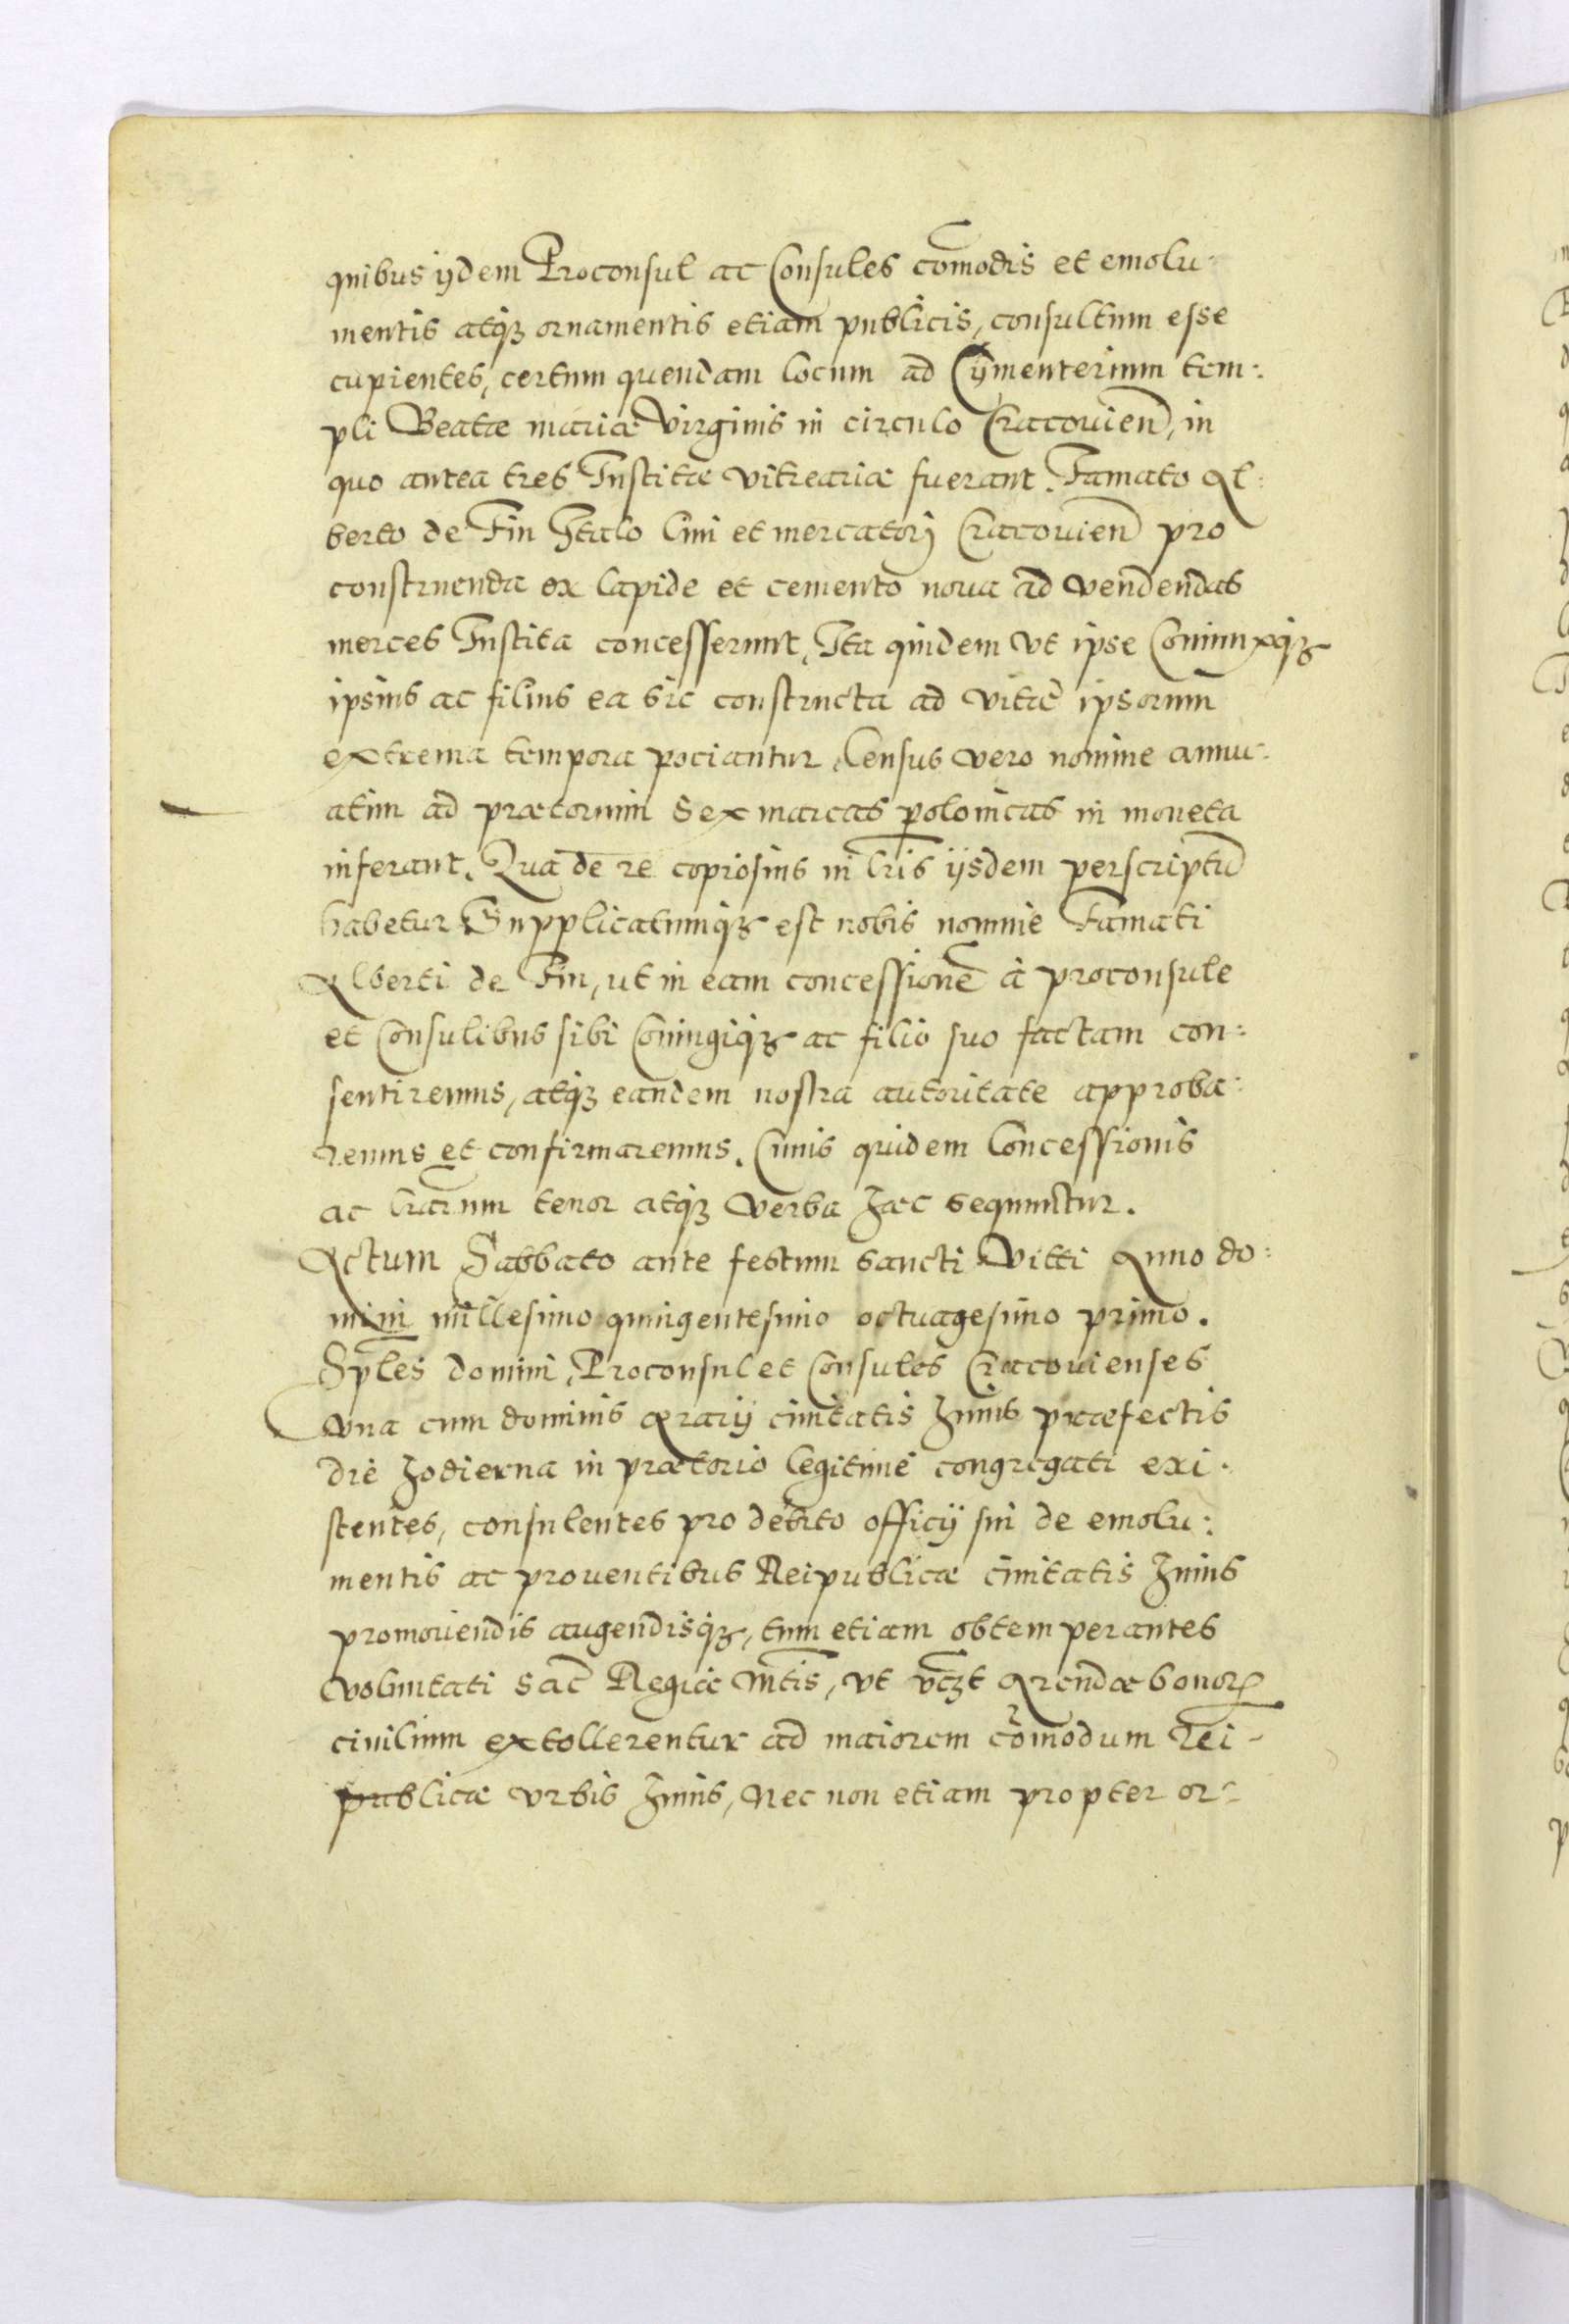 quibus ijdem Proconsul ac Consules com̃odis et emolu:
mentis atq̃ꝫ ornamentis etiam publicis, consultum esse
cupientes, certum quendam locum ad Cÿmenterium tem:
pli Beatæ mariæ Virginis in circulo Cracouien̄, in
quo antea tres Institæ vitreariæ fuerant. Famato Al:
berto de Fin Italo Ciui et mercatorj Cracouien̄ pro
construenda ex lapide et cemento noua ad vendendas
merces Instita concesserunt, Ita quidem vt ipse Coniunxq̃ꝫ
ipsius ac filius ea sic constructa ad vitæ ipsorum
extrema tempora pociantur, Census vero nomine annu:
atim ad prætorium sex marcas polonicas in moneta
inferant. Qua de re copiosius in lr̃is ijsdem perscriptū
habetur Supplicatumq̃ꝫ est nobis nomine Famati
Alberti de Fin, ut in eam concessionē à proconsule
et Consulibus sibi Coniugiq̃ꝫ ac filio suo factam con:
sentiremus, atq̃ꝫ eandem nostra autoritate approba:
remus et confirmaremus. Cuius quidem Concessionis
ac lr̃arum tenor atq̃ꝫ verba hæc sequuntur.
Actum Sabbato ante festum sancti Viti Anno do:
mini millesimo quingentesimo octuagesimo primo.
Sp̃les domini, Proconsul et Consules Cracouienses
vna cum dominis ærarij ciuitatis huius præfectis
die hodierna in prætorio legitime congregati exi:
stentes, consulentes pro debito officij sui de emolu:
mentis ac prouentibus Reipublicæ ciuitatis huius
promouendis augendisq̃ꝫ, tum etiam obtemperantes
voluntati sac̄ Regiæ mt̃is, vt vcꝫt Arendæ bonorꝝ
ciuilium extollerentur ad maiorem com̃odum rei-
publicæ vrbis huius, nec non etiam propter or: